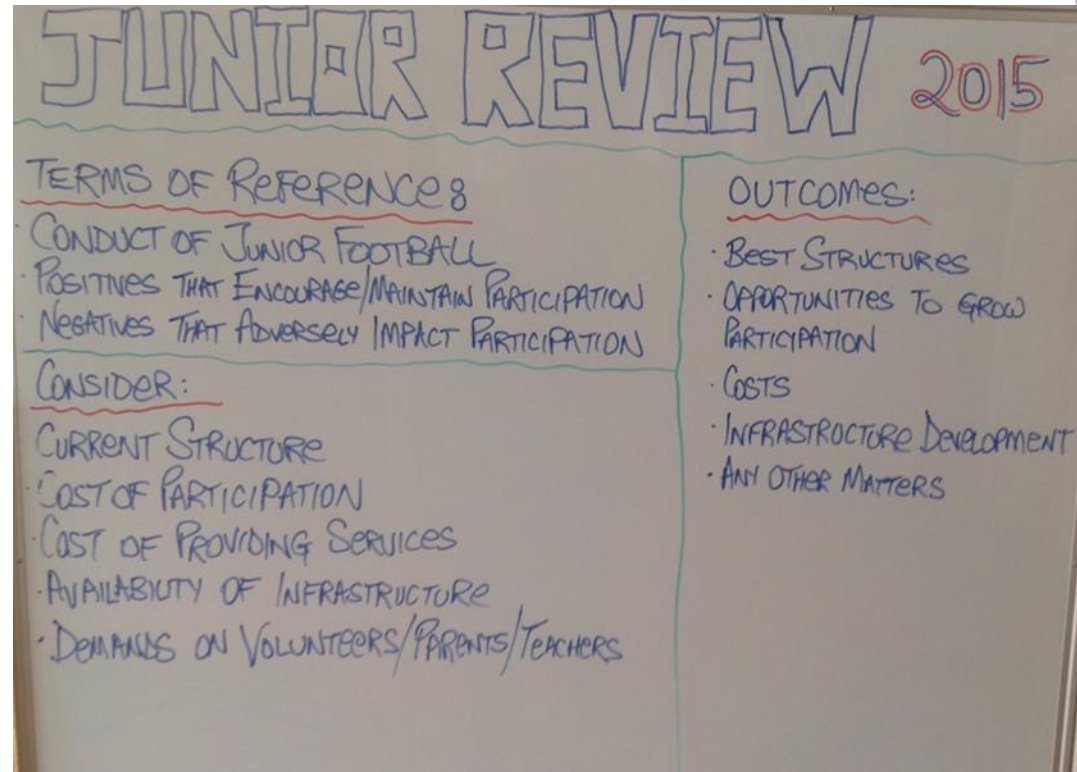 JUNIOR REVIEW 2015
TERMS OF REFERENCE:
· CONDUCT OF JUNIOR FOOTBALL
· POSITIVES THAT ENCOURAGE/MAINTAIN PARTICIPATION
· NEGATIVES THAT ADVERSELY IMPACT PARTICIPATION
CONSIDER:
CURRENT STRUCTURE
· COST OF PARTICIPATION
· COST OF PROVIDING SERVICES
· AVAILABILITY OF INFRASTRUCTURE
· DEMANDS ON VOLUNTEERS/PARENTS/TEACHERS
OUTCOMES:
· BEST STRUCTURES
· OPPORTUNITIES TO GROW
PARTICIPATION
· COSTS
· INFRASTRUCTURE DEVELOPMENT
· ANY OTHER MATTERS